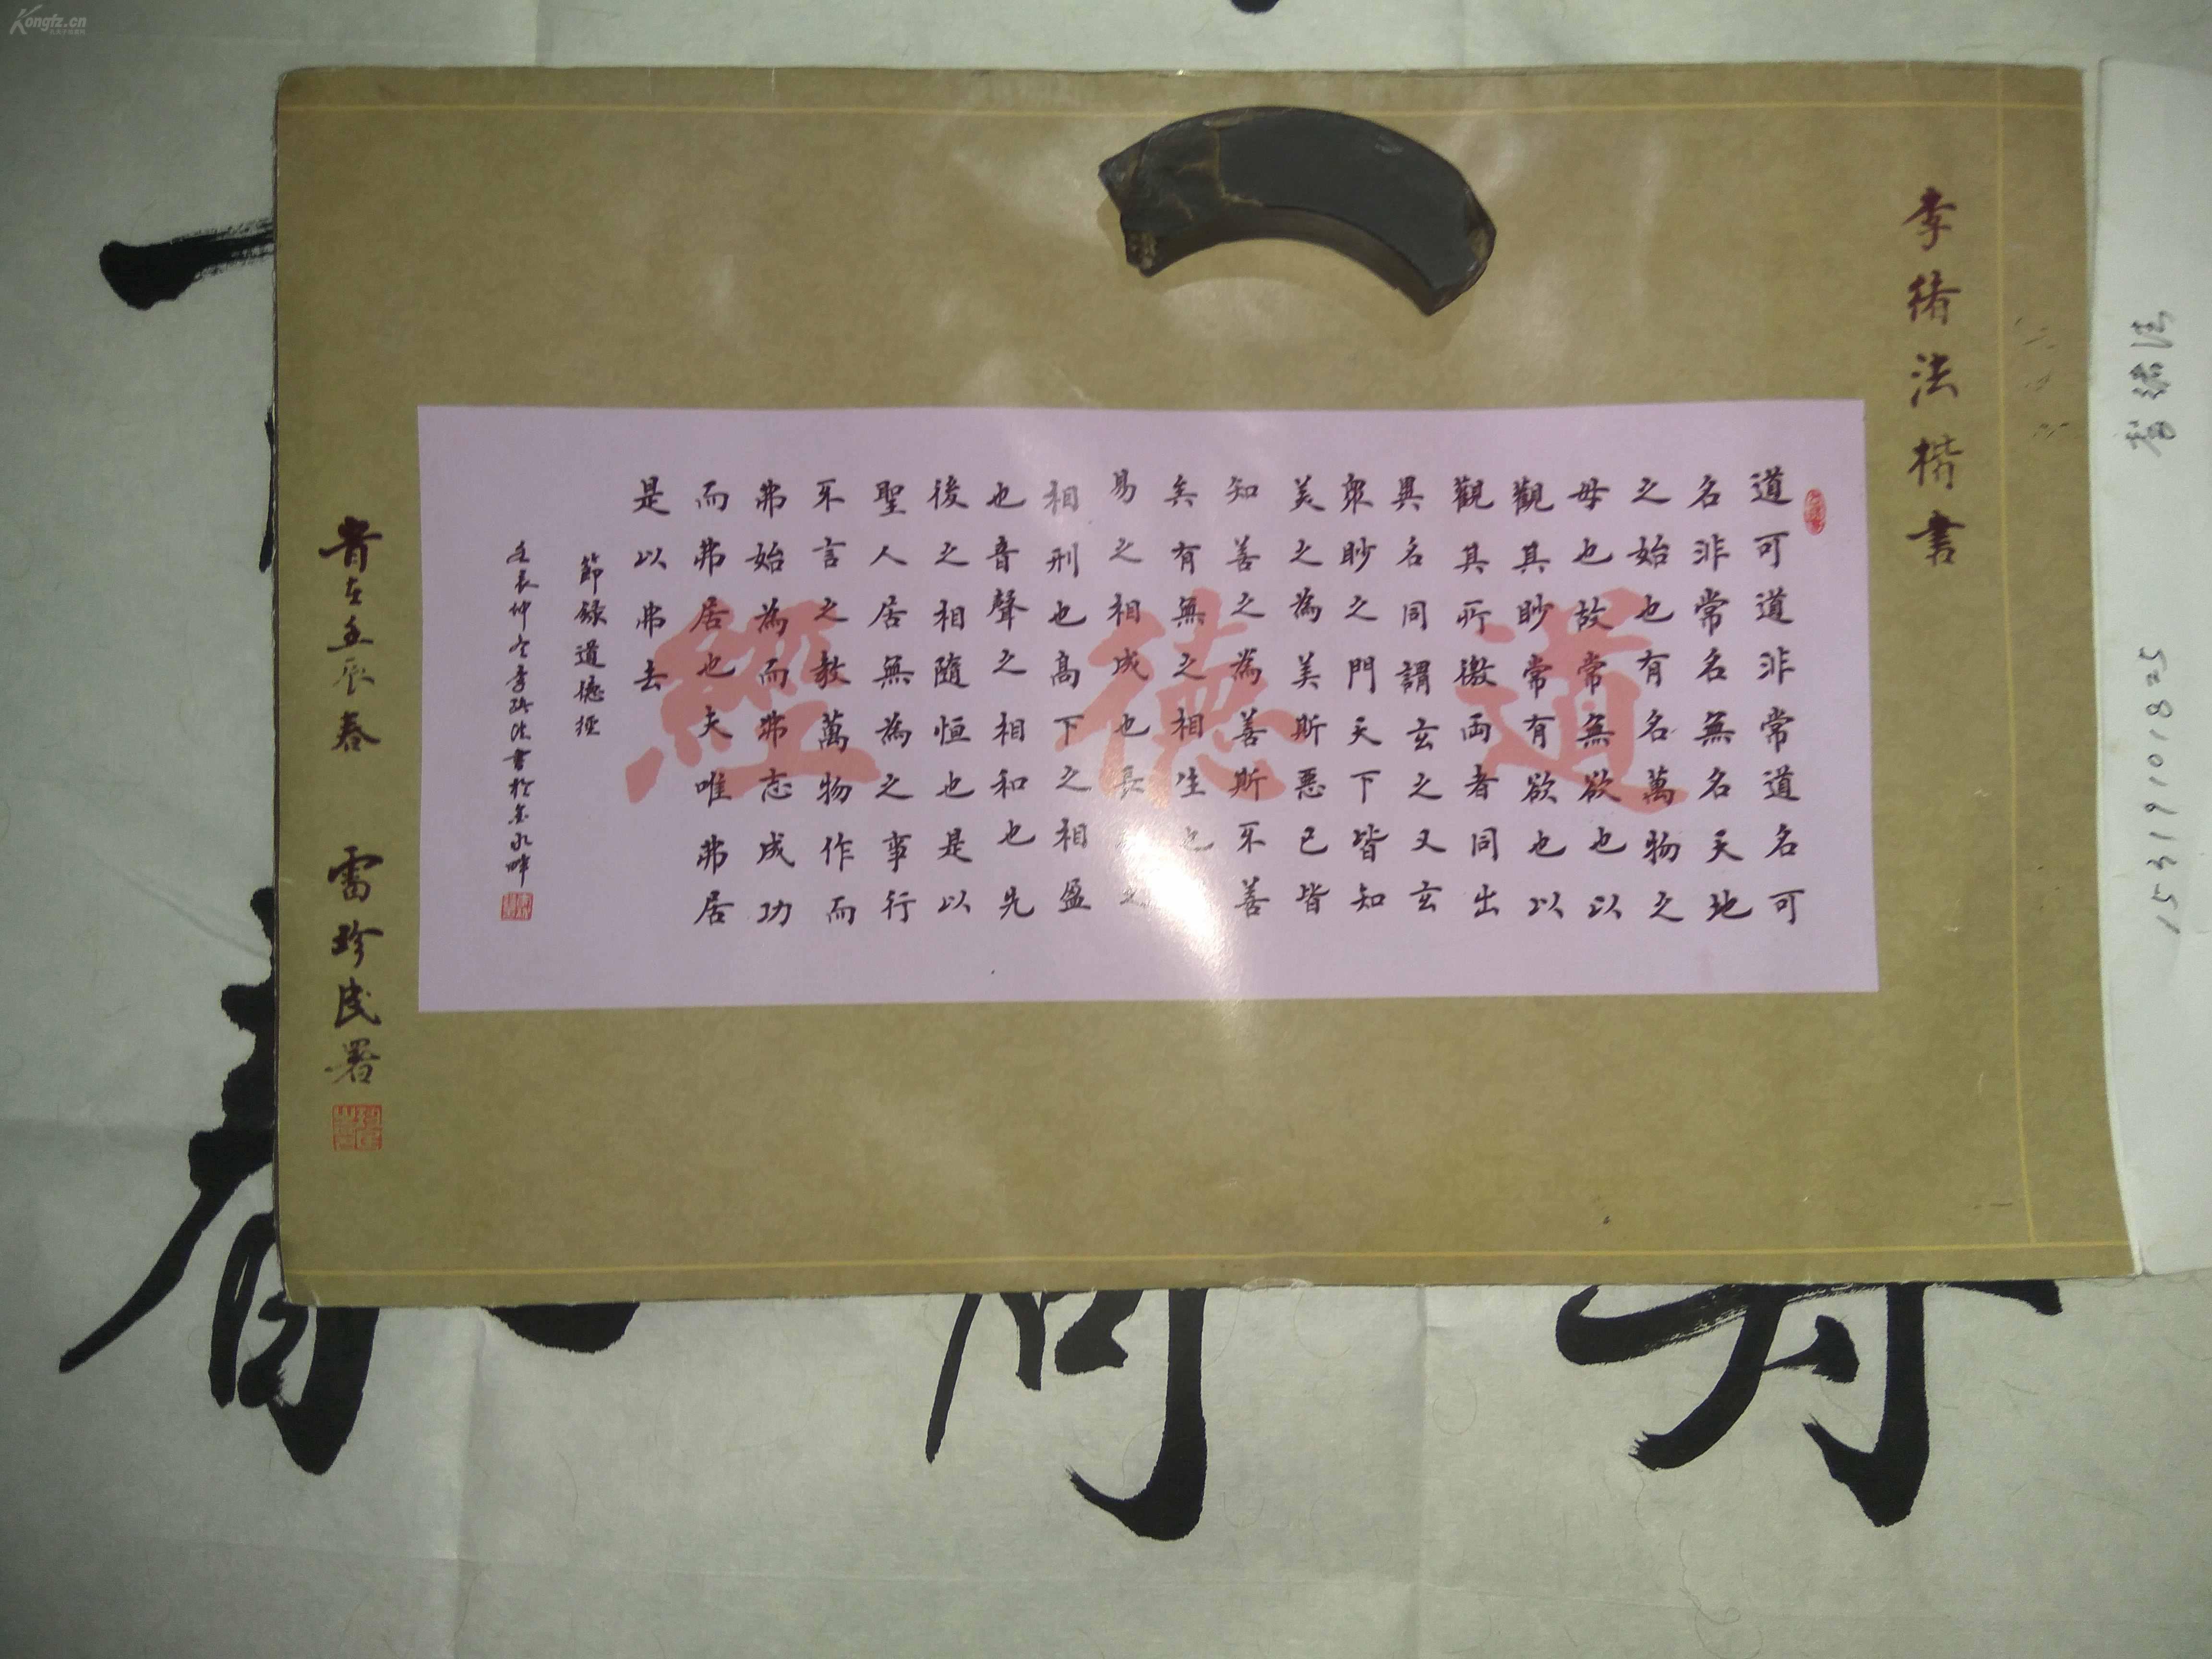 Kongfz.cn
李绪法楷書
道可道非常道名可
名非常名無名天地
之始也有名萬物之
母也故常無欲也以
觀其眇常有欲也以
觀其所徼兩者同出
異名同謂玄之又玄
衆眇之門天下皆知
美之為美斯惡已皆
知善之為善斯不善
矣有無之相生也
易之相成也長之
相刑也高下之相盈
也音聲之相和也先
後之相隨恒也是以
聖人居無為之事行
不言之教萬物作而
弗始為而弗志成功
而弗居也夫唯弗居
是以弗去
節錄道德經
壬辰仲冬李绪法書於
道德經
壬辰春 雷珍民署
15319101825